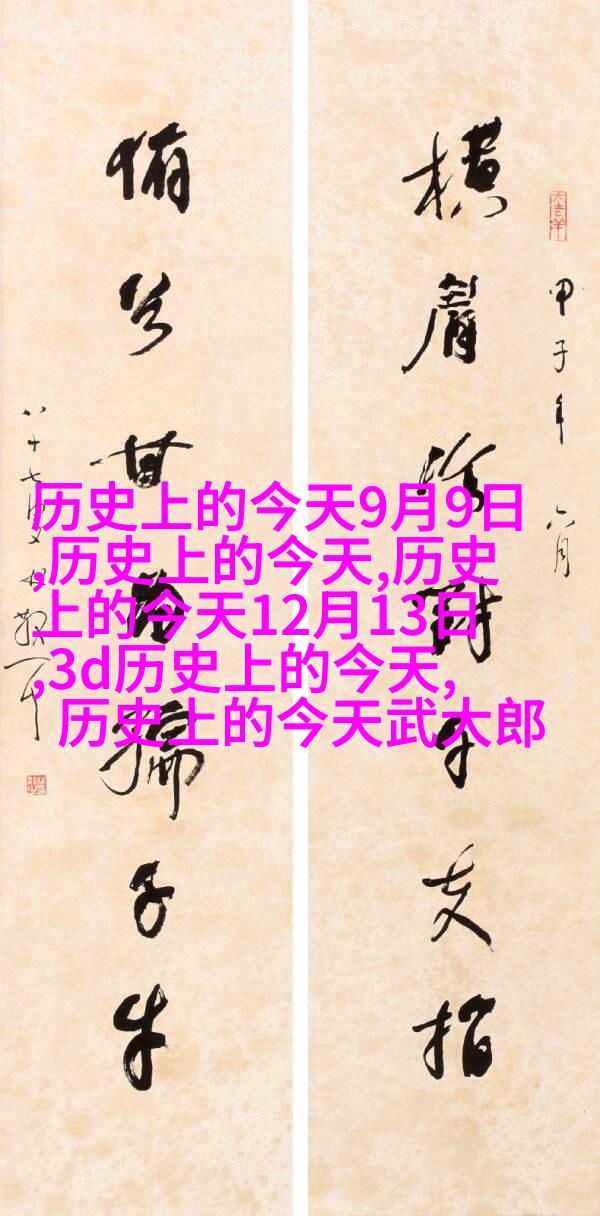 甲子年六月
横眉冷對千夫指
俯首甘為孺子牛
八十七叟
历史上的今天9月9日
,历史上的今天,历史
上的今天12月13日
,3d历史上的今天,
历史上的今天武大郎